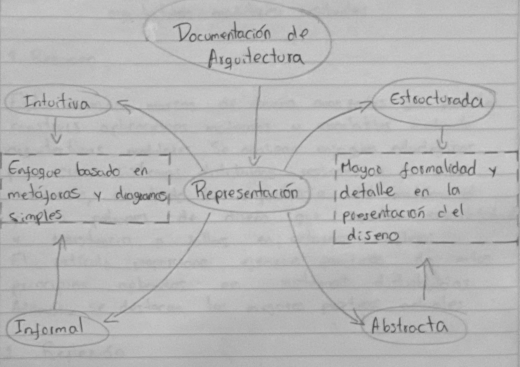 Documentación de
Arquitectura
Intuitiva
Estructurada
Enfoque basado en
metáforas y diagramas
simples
Representación
Mayor formalidad y
detalle en la
presentación del
diseno
Informal
Abstracta